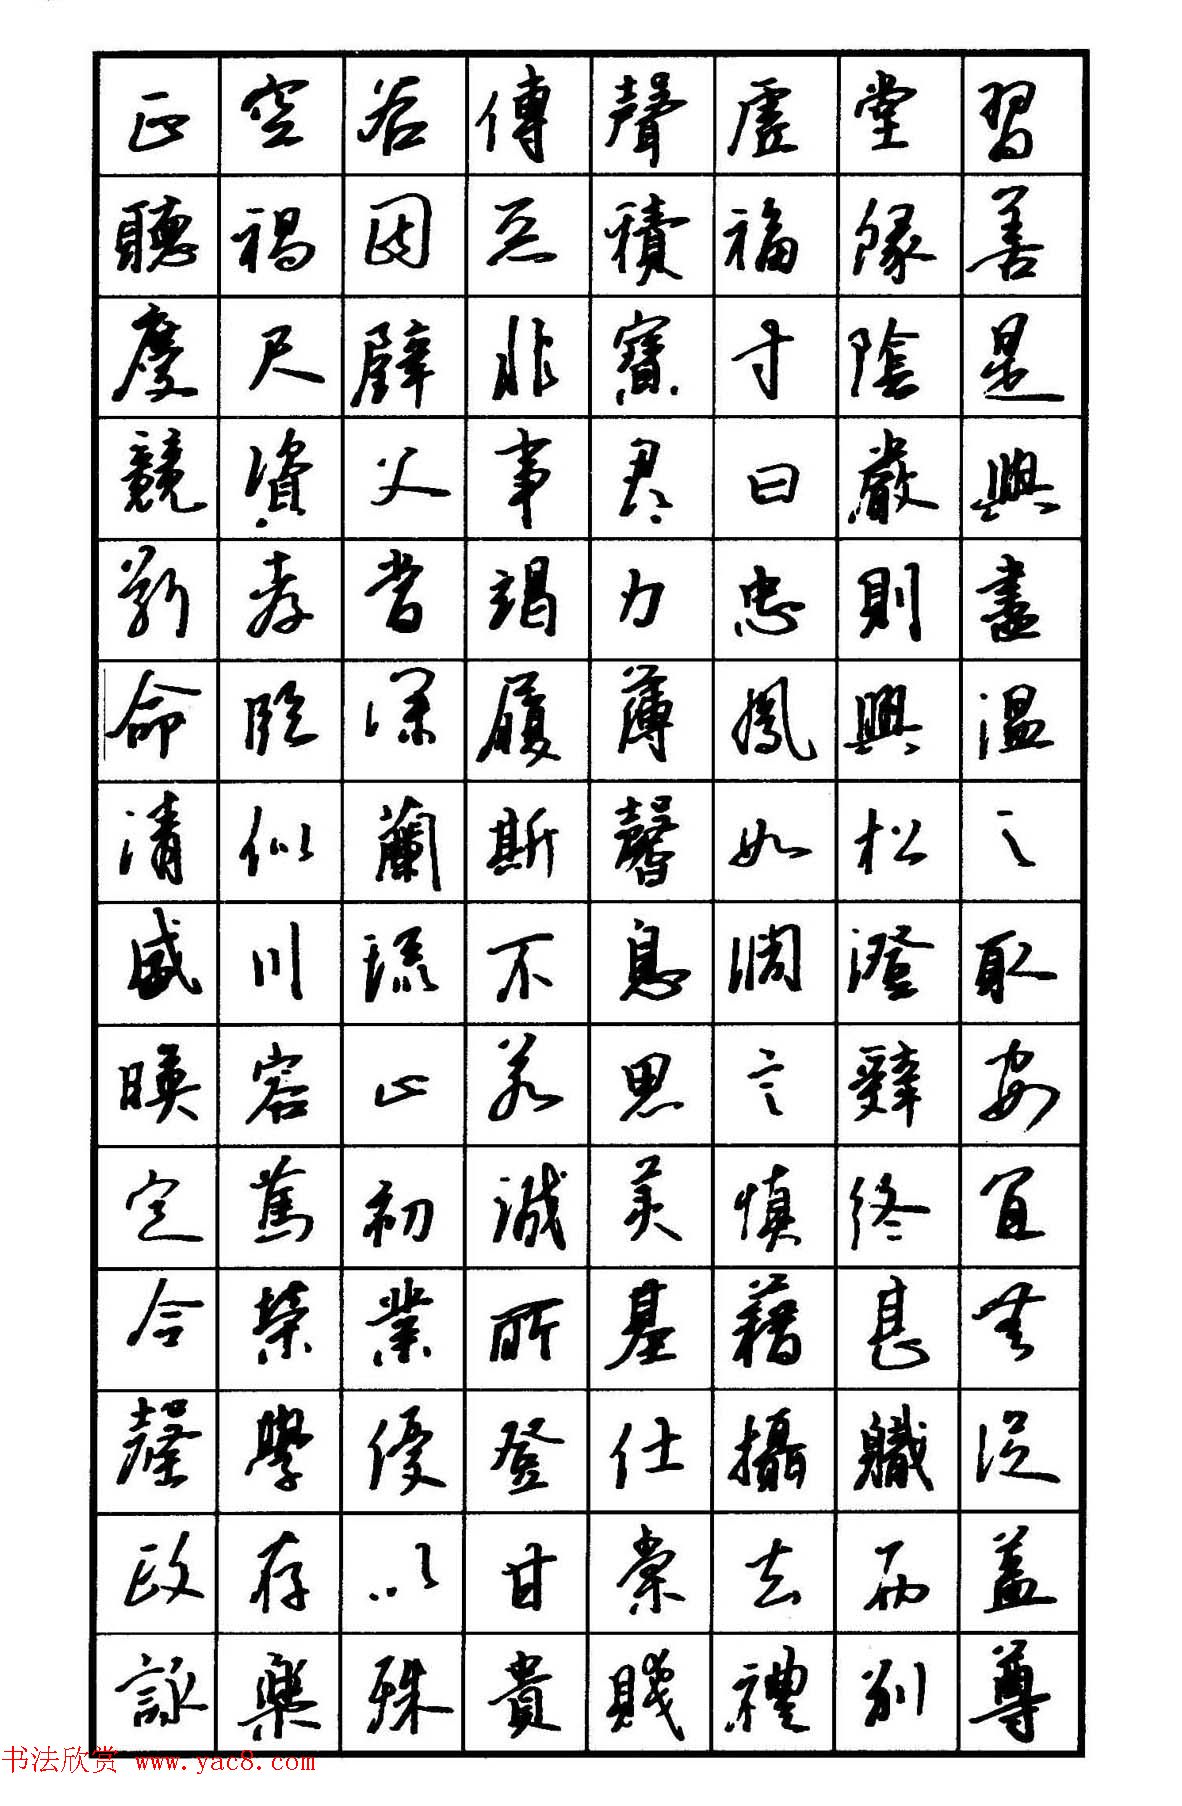 正空谷傳聲虛堂習
聽禍因惡積福緣善
慶尺璧非寶寸陰是
競資父事君曰嚴與
敬孝當竭力忠則盡
命臨深履薄鳳興溫
清似蘭斯馨如松之
盛川流不息淵澄取
暎容止若思言辭安
定篤初誠美慎終宜
令榮業所基藉甚無
學優登仕攝職從
政存以甘棠去而益
詠樂殊貴賤禮別尊
书法欣赏 www.yac8.com